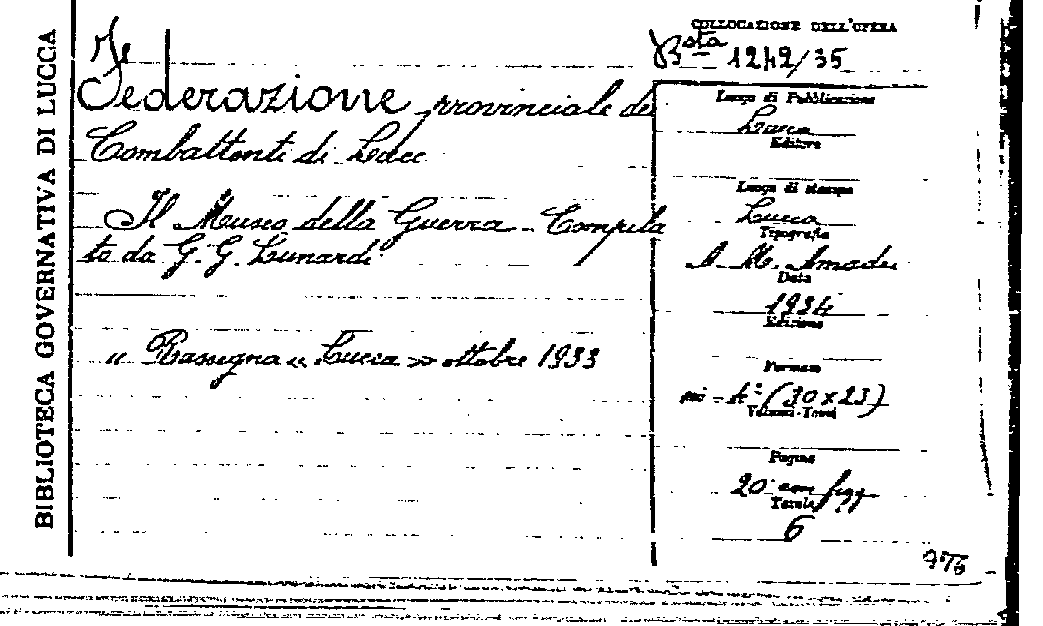 BIBLIOTECA GOVERNATIVA DI LUCCA
COLLOCAZIONE DELL'OPERA
Bsta 1242/35
Fe
Federazione provinciale dei
Combattenti di Lucca
Il Museo della Guerra - Compila
to da G. G. Lunardi
" Rassegna « Lucca » ottobre 1933
Luogo di Pubblicazione
Lucca
Editore
Luogo di stampa
Lucca
Tipografia
A. M. Amadei
Data
1934
Edizione
Formato
in - 4° (30 x 23)
Volumi-Tomi
Pagine
20 con figg.
Tavole
6